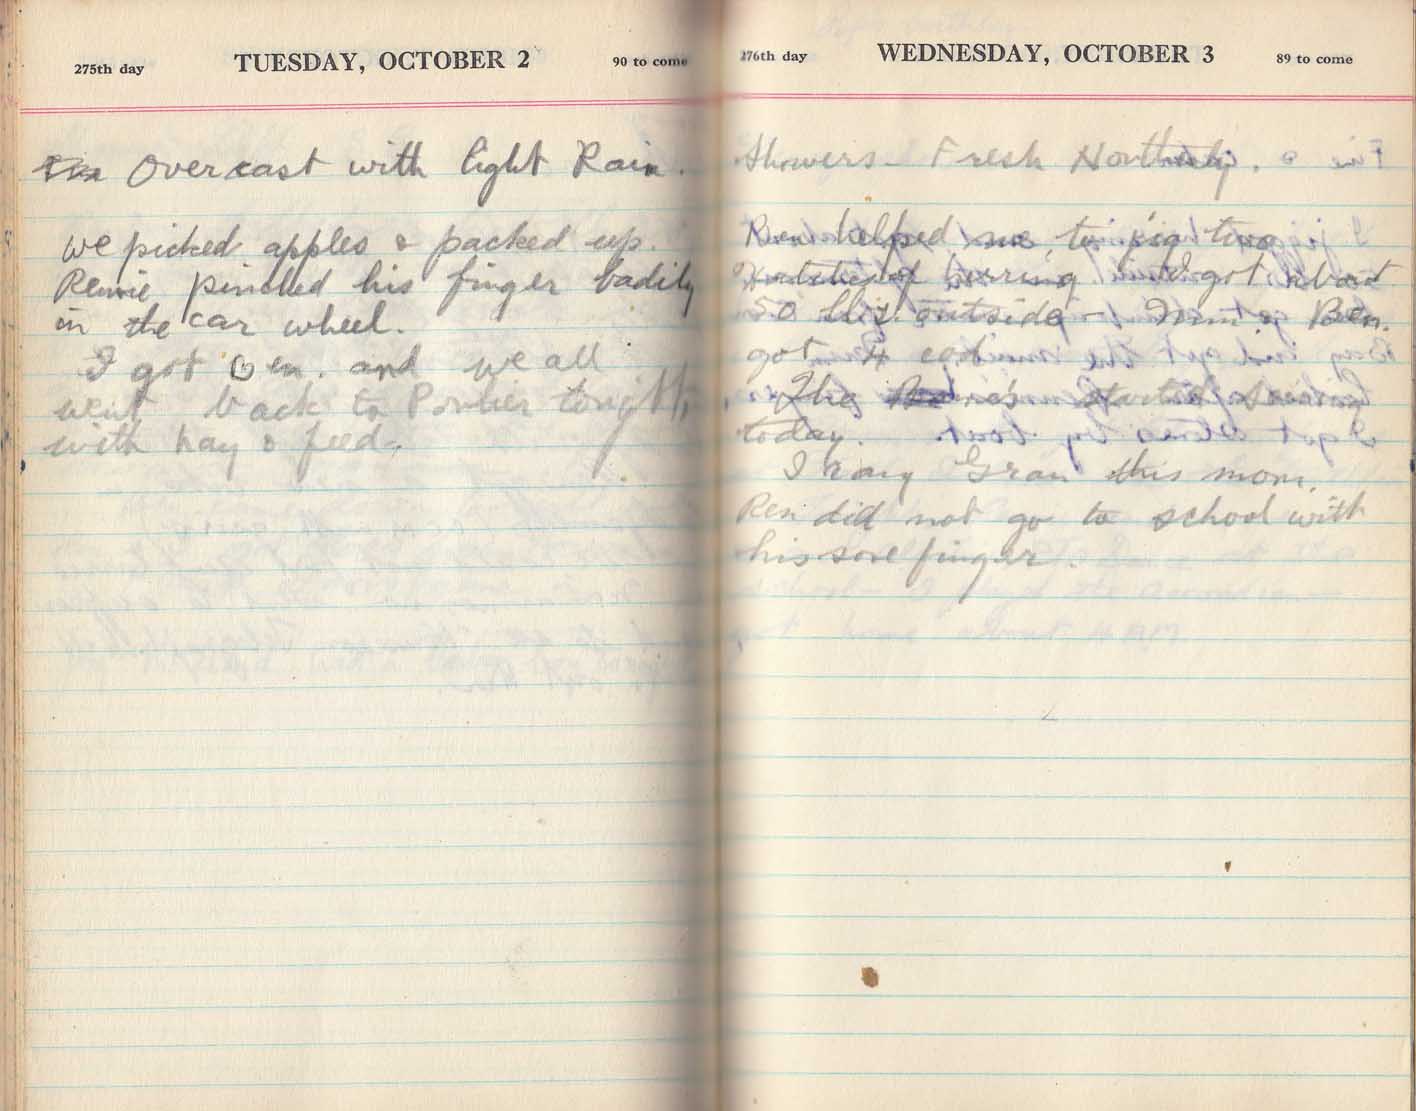 275th day TUESDAY, OCTOBER 2 90 to come
Overcast with light Rain.
we picked apples & packed up.
Rennie pinched his finger badily
in the car wheel.
I got Ben. and we all
went back to Porlier tonight,
with hay & feed.
276th day WEDNESDAY, OCTOBER 3 89 to come
Showers - Fresh Northerly.
Ren helped me to jig two
of herring. I got about
50 lbs. outside - Jim & Ben.
got 4 cod.
The started seining
today.
I Gran this morn.
Ren did not go to school with
his sore finger.